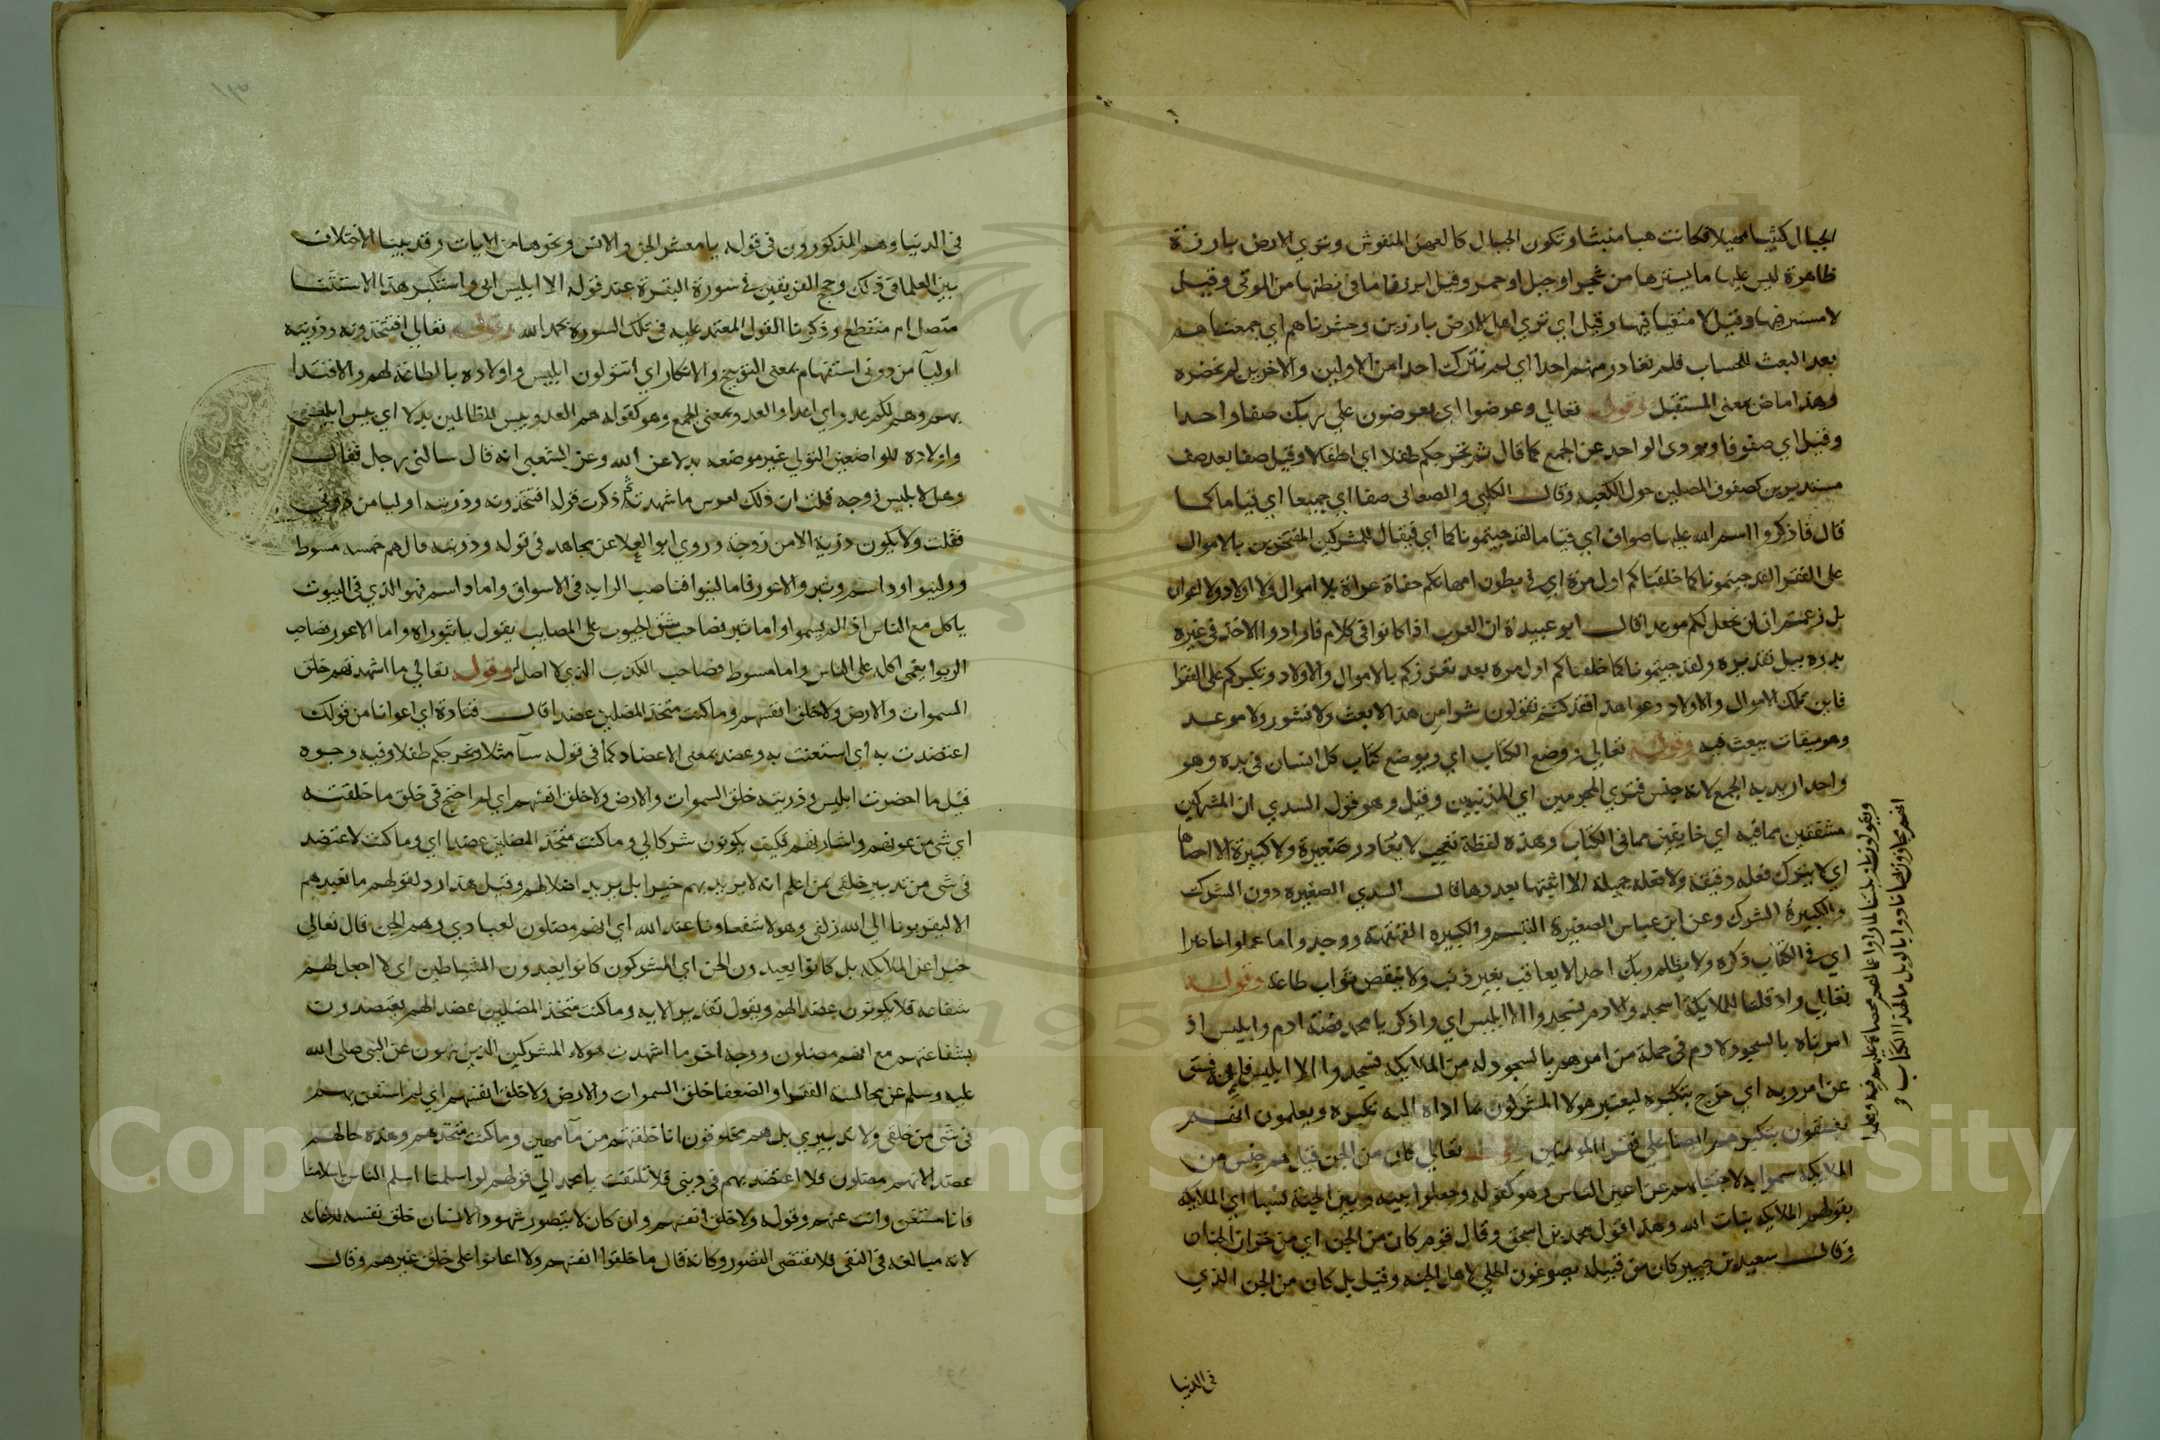 الجبال كثيبا مهيلا فكانت هبا منبثا وتكون الجبال كالعهن المنفوش وتري الارض بارزة
ظاهرة ليس عليها ما يسترها من شجر او جبل او حمر وقيل ابرزنا ما في بطنها من الموتى وقيل
وقيل اي تري اهل الارض بارزين وحشرناهم اي جمعناهم
بعد البعث للحساب فلم نغادر منهم احدا اي لم نترك احدا من الاولين والاخرين لم نحضره
وهذا ماض بمعنى المستقبل وقوله تعالي وعرضوا اي يعرضون علي ربك صفا واحدا
وقيل اي صفوفا ويودى الواحد عن الجمع كما قال ثم نخرجكم طفلا اي اطفالا وقيل صفا بعد صف
مستديرين كصفوف المصلين حول الكعبه وقال الكلبي صفا اي جميعا اي قياما كما
قال فاذكروا اسم الله عليها صواف اي قياما لقد جيتمونا كما اي فيقال للمشركين المفتخرين بالاموال
على الفقرا لقد جيتمونا كما خلقناكم اول مرة اي في بطون امهاتكم حفاة عراة بلا اموال ولا اولاد ولا اعوان
بل زعمتم ان لن نجعل لكم موعدا قال ابو عبيدة ان العرب اذا كانوا في كلام فارادوا الاخذ في غيره
بدوه ببل تقديره ولقد جيتمونا كما خلقناكم اول مرة بعد تعززكم بالاموال والاولاد وتكبركم على الفقرا
فاين تلك الاموال والاولاد وهذا فقد كنتم تقولون شرا من هذا لا بعث ولا نشور ولا موعد
وهو ميقات يبعث فيه وقوله تعالي ووضع الكتاب اي ويوضع كتاب كل انسان في يده وهو
واحد اريد به الجمع لانه جنس فتري المجرمين اي المذنبين وقيل وهو قول السدي ان المشركين
مشفقين مما فيه اي خايفين مما في الكتاب وهذه لفظة تعجب لا يغادر صغيرة ولا كبيرة الا احصاها
اي لا يترك فعله دقيقة ولا فعله جميلة الا اثبتها بعدوها قال السدي الصغيرة دون الشرك
والكبيرة الشرك وعن ابن عباس الصغيرة التبسم والكبيرة القهقهة ووجدوا ما عملوا حاضرا
اي في الكتاب ذكره ولا يظلم ربك احدا لا يعاقب بغير ذنب ولا ينقص ثواب طاعة وقوله
تعالي واذ قلنا للملايكة اسجدوا لادم فسجدوا الا ابليس اي واذكر يا محمد قصة ادم وابليس اذ
امرناه بالسجود لادم في جملة من امرهم بالسجود له من الملايكة فسجدوا الا ابليس ففسق
عن امر ربه اي خرج بتكبره ليعتبر هولا المشركون بما اداه اليه تكبره ويعلمون انهم
يفسقون بتكبرهم ايضا على فقرا المومنين وقوله تعالي كان من الجن قيل هم جنس من
الملايكة سموا به لاجتنانهم عن اعين الناس وهو كقوله وجعلوا بينه وبين الجنة نسبا اي الملايكة
بقولهم الملايكة بنات الله وهذا قول محمد بن اسحق وقال قوم كان من الجن اي من خزان الجنان
وقال سعيد بن جبير كان من قبيلة يصوغون الحلي لاهل الجنه وقيل بل كان من الجن الذي
في الدنيا
ويقولون يا ويلتنا
في الدنيا وهم المذكورون في قوله يا معشر الجن والانس ونحوها من الايات وقد بينا الاختلاف
بين العلما في ذلك وحج الفريقين في سورة البقرة عند قوله الا ابليس ابى واستكبر هذا الاستثنا
متصل ام منقطع وذكرنا القول المعتمد عليه في تلك السورة بحمد الله وقوله تعالي افتتخذونه وذريته
اوليا من دوني استفهام بمعنى التوبيخ والانكار اي اتتولون ابليس واولاده بالطاعة لهم والاقتدا
بهم وهم لكم عدو اي اعدا والعدو بمعنى الجمع وهو كقوله هم العدو بيس للظالمين بدلا اي بيس ابليس
واولاده للواضعين التولي غير موضعه بدلا عن الله وعن الشعبي انه قال سالني رجل فقال
وهل لابليس زوجه قلت ان ذلك لعرس ما شهدته ثم ذكرت قوله افتتخذونه وذريته اوليا من دوني
فقلت ولا يكون ذرية الا من زوجة وروي ابو العلا عن مجاهد في قوله وذريته قال هم خمسه مسوط
وزلنبور وداسم وثبر والاعور فاما زلنبور فناصب الرايه في الاسواق واما داسم فهو الذي في البيوت
ياكل مع الناس اذا لم يسموا واما ثبر فصاحب شق الجيوب على المصايب يقول يا ثبوراه واما الاعور فصاحب
الربوا يعمي اكله على الناس واما مسوط فصاحب الكذب الذي لا اصل له وقوله تعالي ما اشهدتهم خلق
السموات والارض ولا خلق انفسهم وما كنت متخذ المضلين عضدا قال قتادة اي اعوانا من قولك
اعتضدت به اي استعنت به وعضد بمعنى الاعضاد كما في قوله سا مثلا ونخرجكم طفلا وفيه وجوه
قيل ما احضرت ابليس وذريته خلق السموات والارض ولا خلق انفسهم اي لم احتج في خلق ما خلقته
اي شي من عونهم واشارتهم فكيف يكونون شركا لي وما كنت متخذ المضلين عضدا اي وما كنت لاعتضد
في شي من تدبير خلقي بمن اعلم انه لا يريد بهم خيرا بل يريد اضلالهم وقيل هذا رد لقولهم ما نعبدهم
الا ليقربونا الى الله زلفى وهولا شفعاونا عند الله اي انهم مضلون لعبادي وهم الجن قال تعالي
خبرا عن الملايكه بل كانوا يعبدون الجن اي المشركون كانوا يعبدون الشياطين اي لا اجعل لهم
شفاعه فلا يكونون عضدا لهم ويقول تقدير الايه وما كنت متخذ المضلين عضدا لهم يعتضدون
بشفاعتهم مع انهم مضلون ووجه اخر ما اشهدت هولا المشركين الذين ينهون عن النبي صلى الله
عليه وسلم عن مجالسة الفقرا والضعفا خلق السموات والارض ولا خلق انفسهم اي لم استعن بهم
في شي من خلقي ولا تدبيري بل هم مخلوقون انا خلقتهم من ما مهين وما كنت متخذهم وهذه حالهم
عضدا لانهم مضلون فلا اعتضد بهم في ديني فلا تلتفت يا محمد الى قولهم لو اسلمنا اسلم الناس باسلامنا
فانا مستغن وانت عنهم وقوله ولا خلق انفسهم وان كان لا يتصور شهود الانسان خلق نفسه
لانه مبالغه في النفي فلا تقتضي التصور وكانه قال ما خلقوا انفسهم ولا اعانوا على خلق غيرهم وقال
Copyright © King Saud University
1957